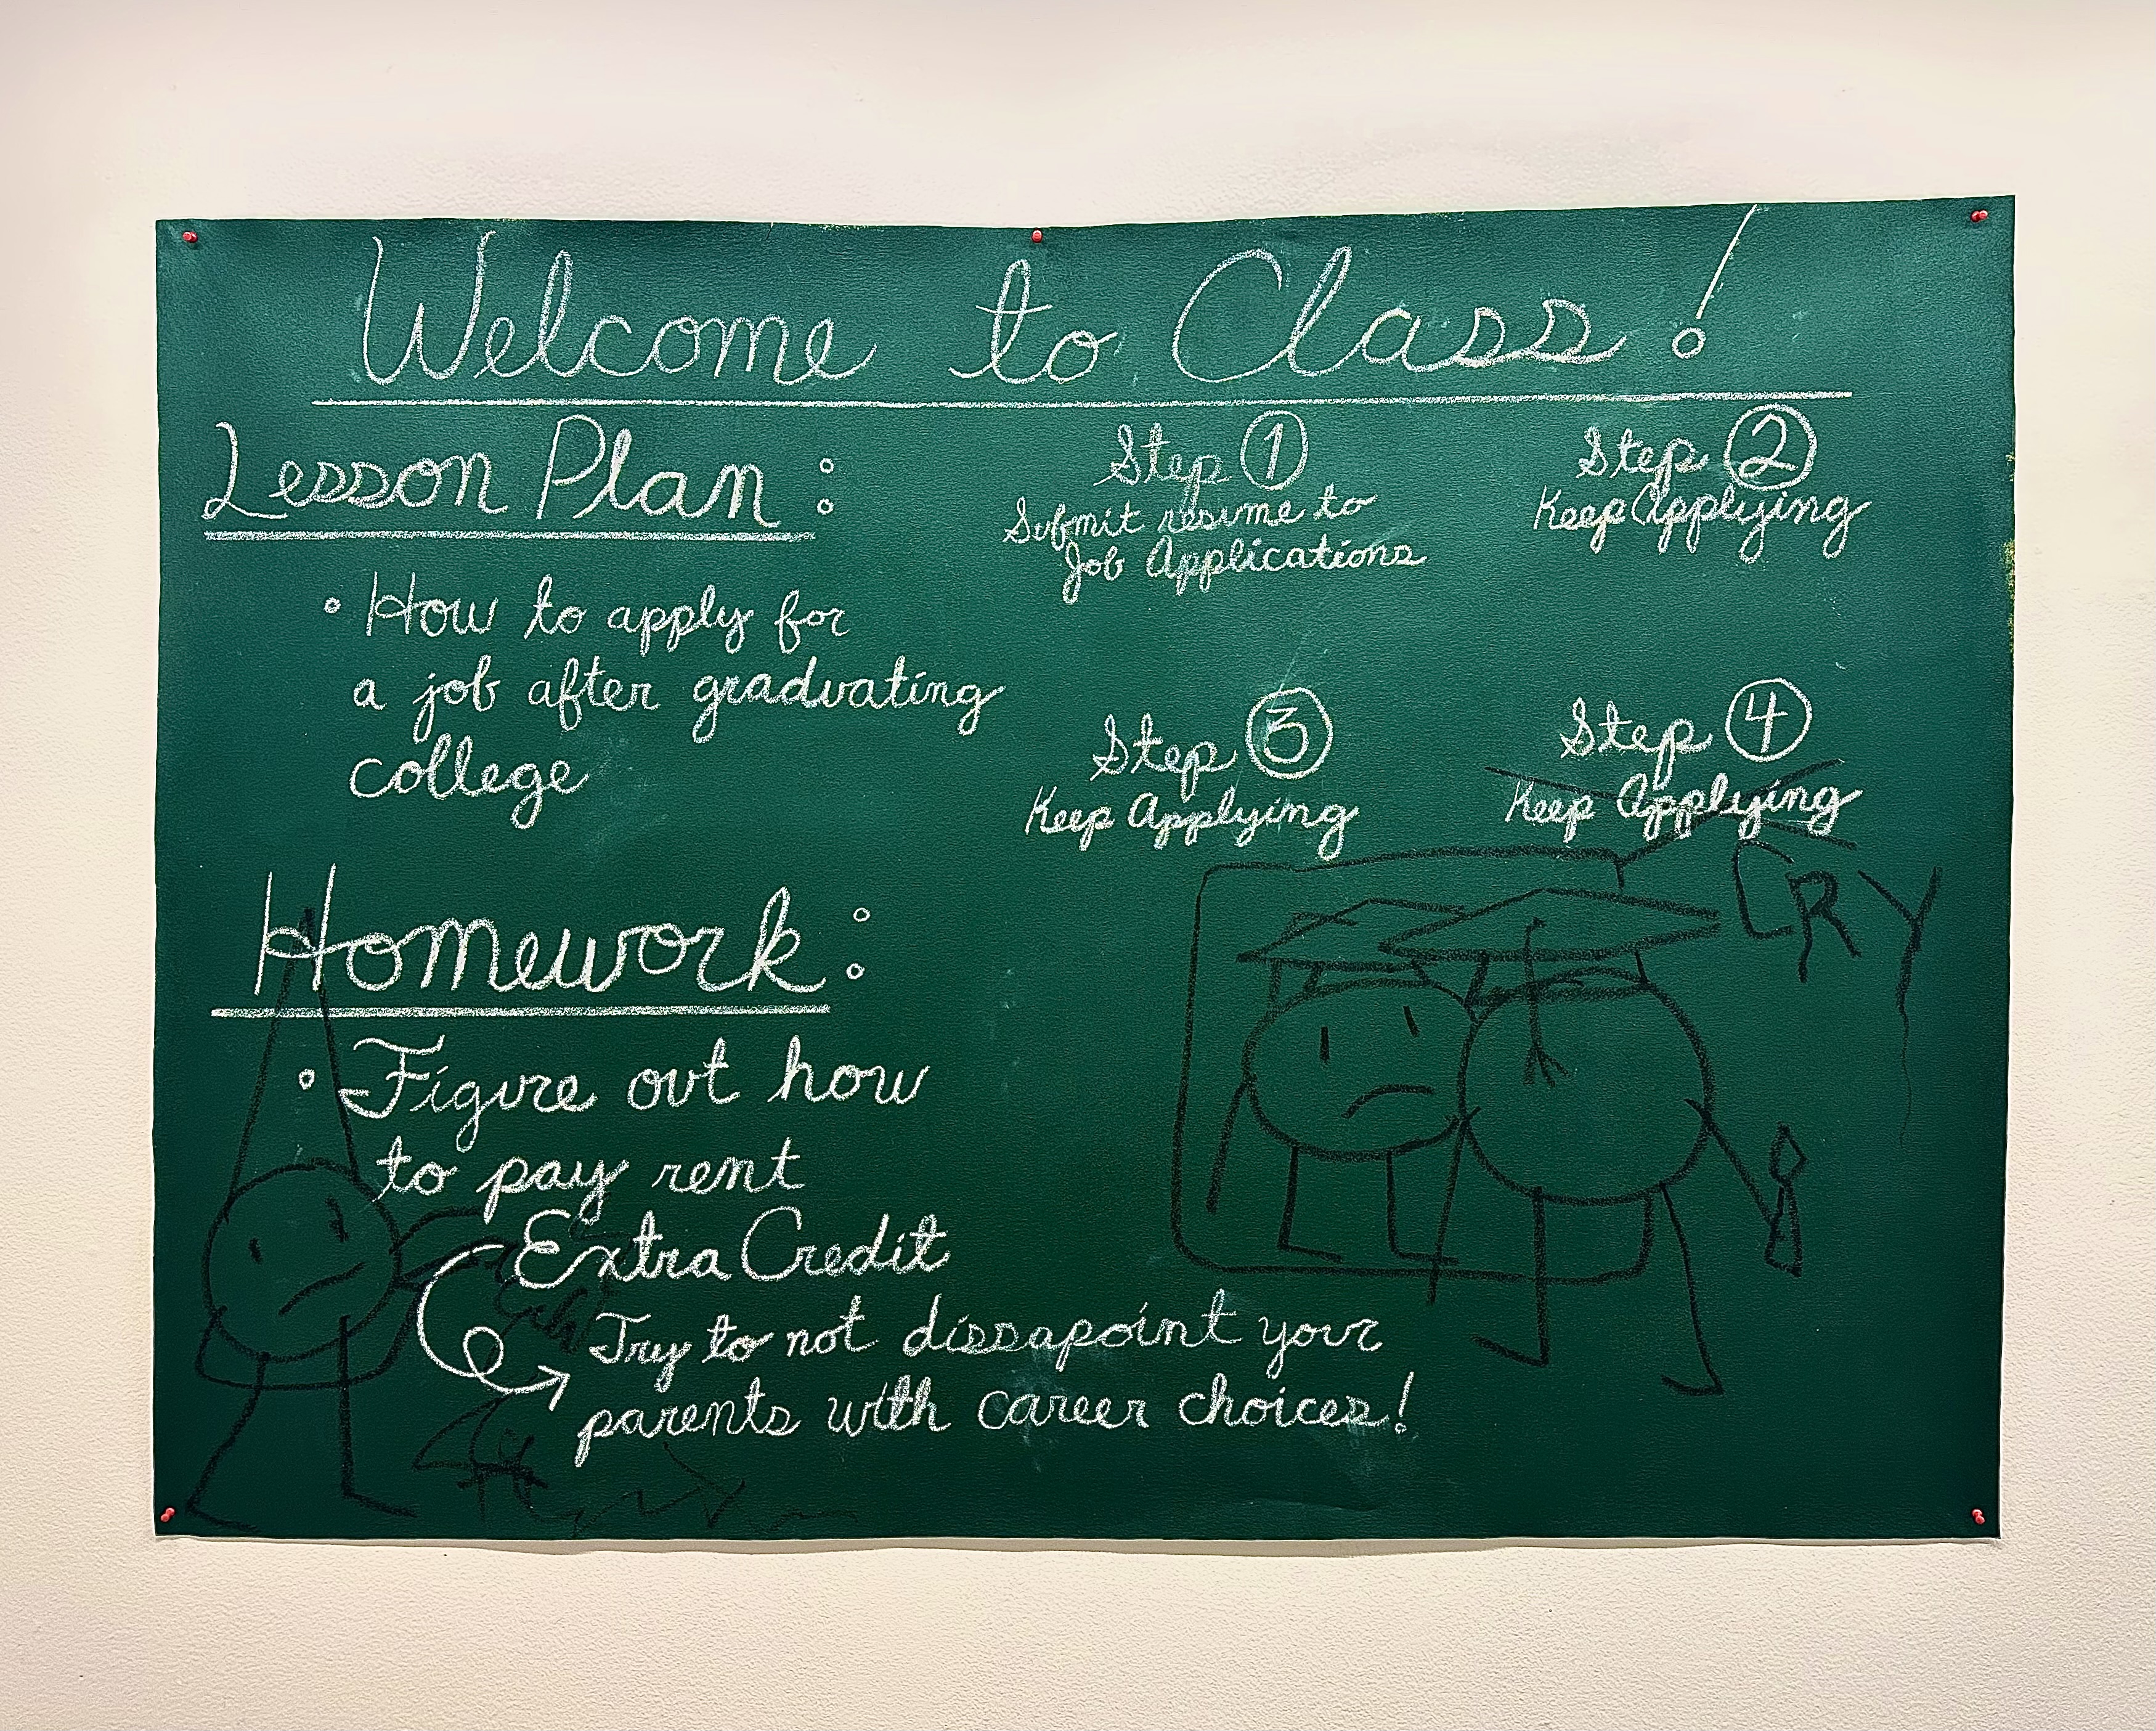 Welcome to Class!
Lesson Plan:
• How to apply for
a job after graduating
college
Step 1
Submit resume to
Job Applications
Step 2
Keep Applying
Step 3
Keep Applying
Step 4
Keep Applying
CRY
Homework:
• Figure out how
to pay rent
Extra Credit
Try to not dissapoint your
parents with career choices!